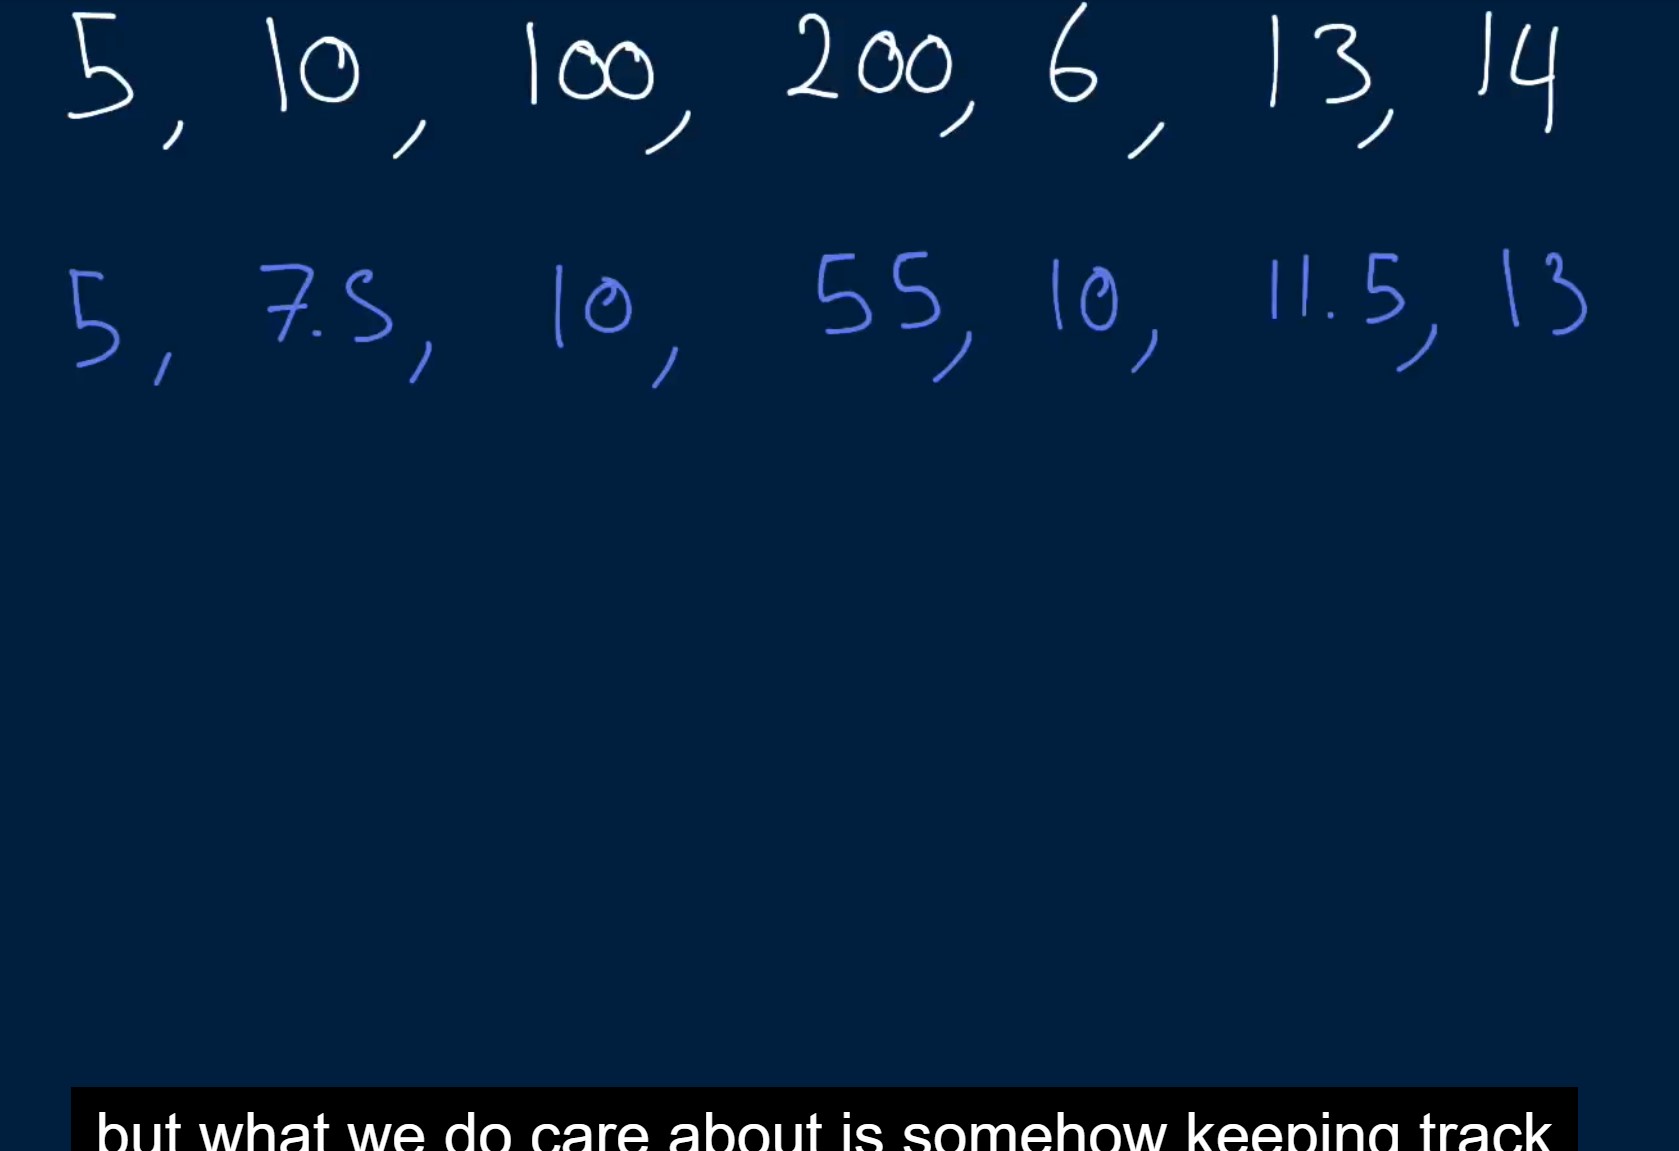 5, 10, 100, 200, 6, 13, 14
5, 7.5, 10, 55, 10, 11.5, 13
but what we do care about is somehow keeping track